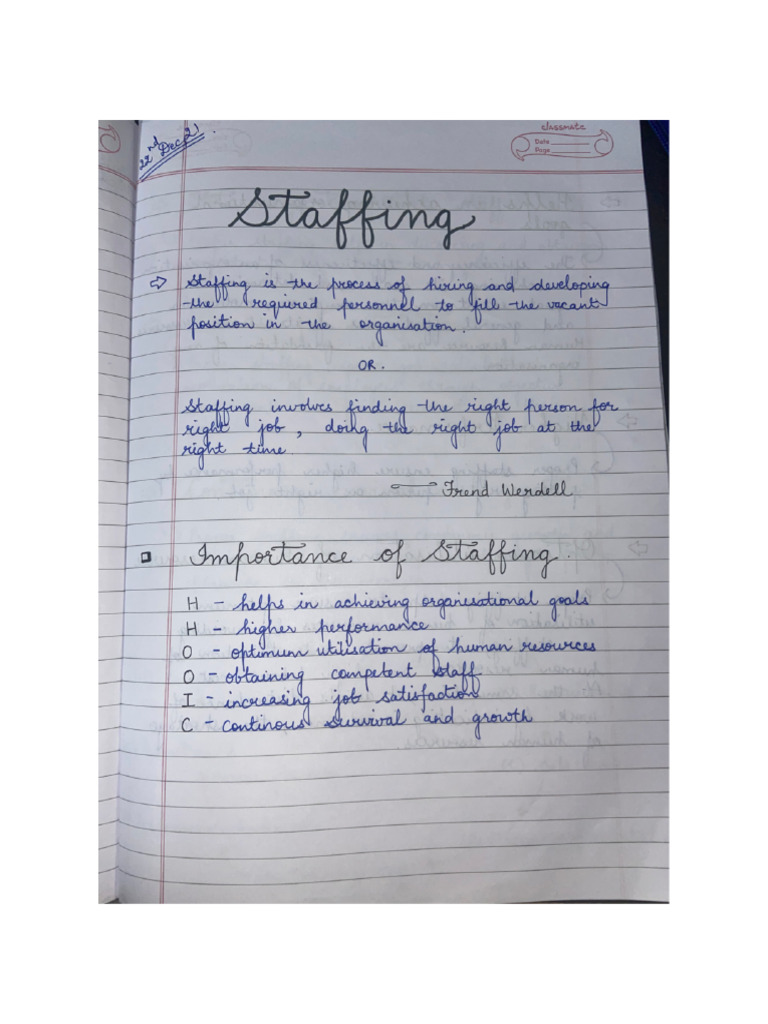 22nd Dec, 21.
classmate
Date
Page
Staffing
⇨ Staffing is the process of hiring and developing
the required personnel to fill the vacant
position in the organisation.
OR.
Staffing involves finding the right person for
right job, doing the right job at the
right time.
Frend Werdell
Importance of Staffing.
H - helps in achieving organisational goals
H - higher performance
O - optimum utilisation of human resources
O - obtaining competent staff
I - increasing job satisfaction
C - continous survival and growth